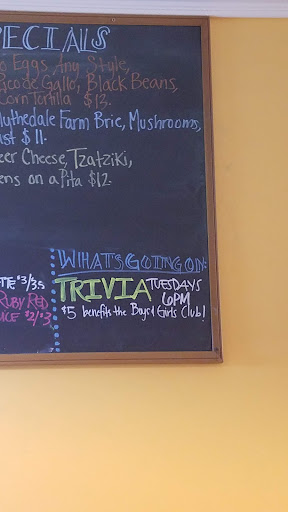 PECIALS
o Eggs Any Style,
Pico de Gallo, Black Beans,
Corn Tortilla $13.
lythedale Farm Brie, Mushrooms,
ast $11.
eer Cheese, Tzatziki,
ens on a Pita $12.
WHAT'S GOING ON:
TRIVIA TUESDAYS
6PM
$5 benefits the Boys & Girls Club!
TE $3/3.5
RUBY RED
ICE $2/$3